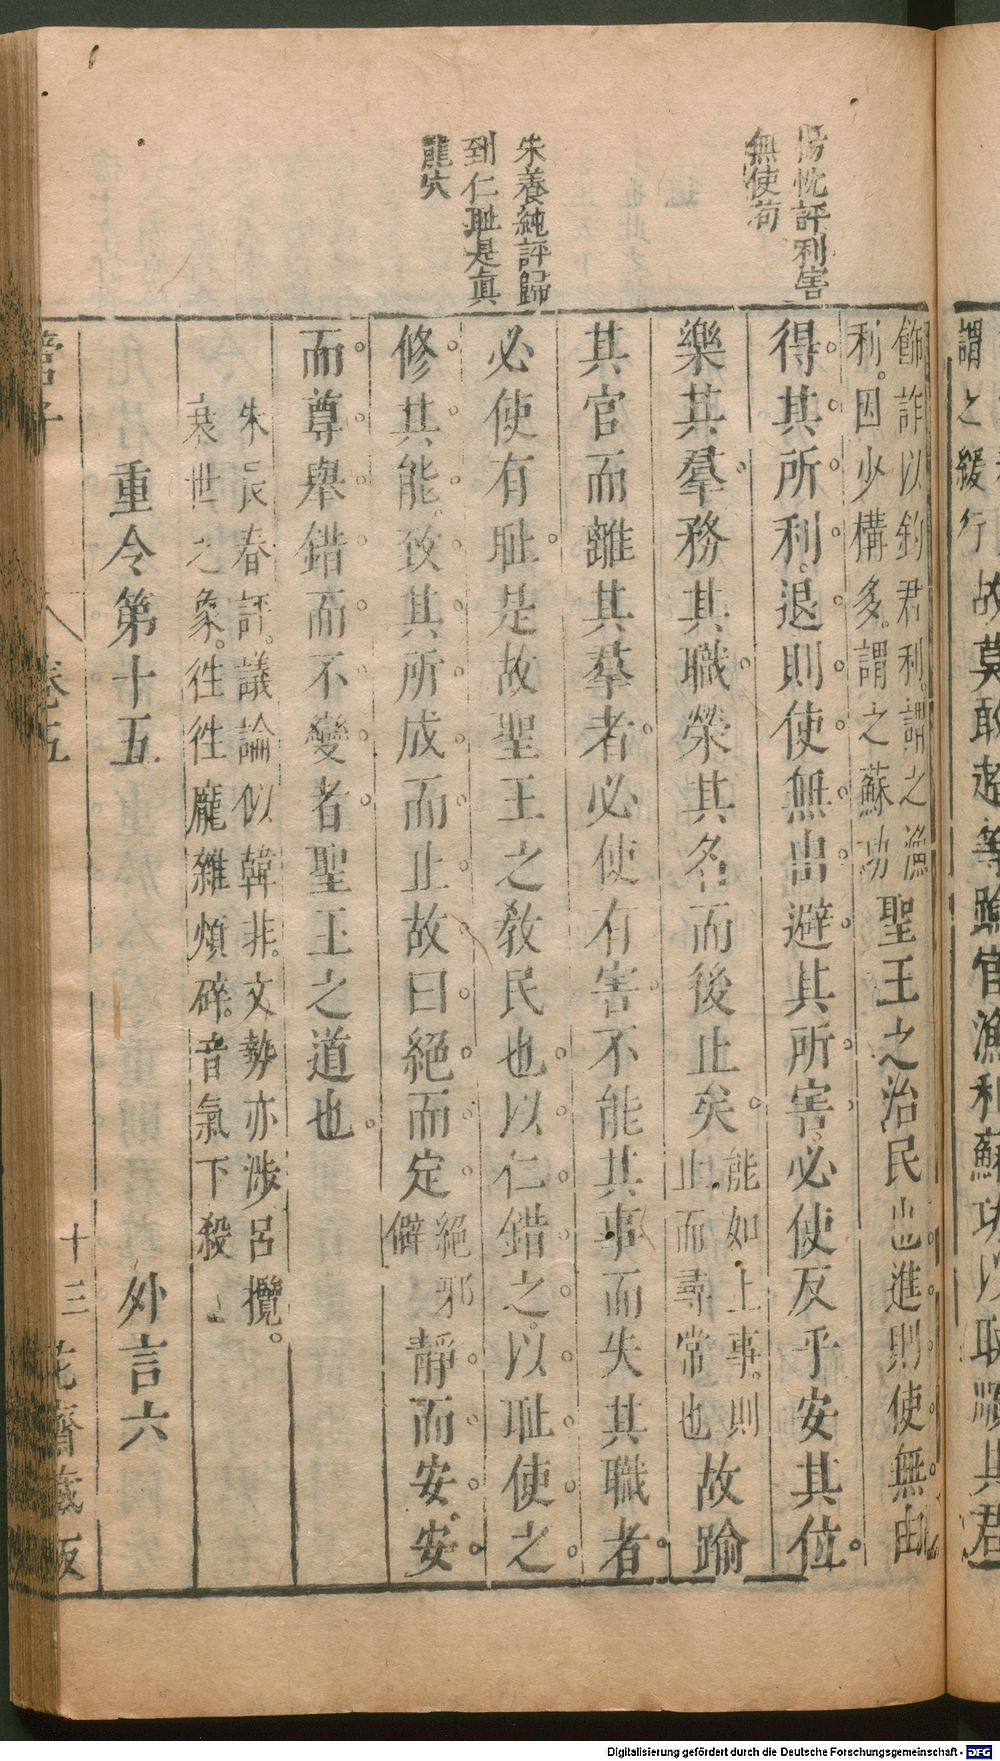 謂之緩行 故莫敢超等踰官漁利蘇功以取順其君
飾詐以釣君利謂之漁
利因少構多謂之蘇功
聖王之治民也進則使無由
得其所利退則使無出避其所害必使反乎安其位
樂其羣務其職榮其名而後止矣 能如上事則
止而尋常也 故踰
其官而離其羣者必使有害不能其事而失其職者
必使有耻是故聖王之教民也以仁錯之以耻使之
修其能致其所成而止故曰絕而定 絕邪
僻 靜而安安
而尊舉錯而不變者聖王之道也
朱長春評議論似韓非文勢亦涉呂攬
衰世之象徃徃龐雜煩碎音氣下殺
重令第十五 外言六
管子 卷五 十三 花齋藏板
楊忱評利害
無使苟
朱養純評歸
到仁耻是真
龍穴
Digitalisierung gefördert durch die Deutsche Forschungsgemeinschaft - DFG